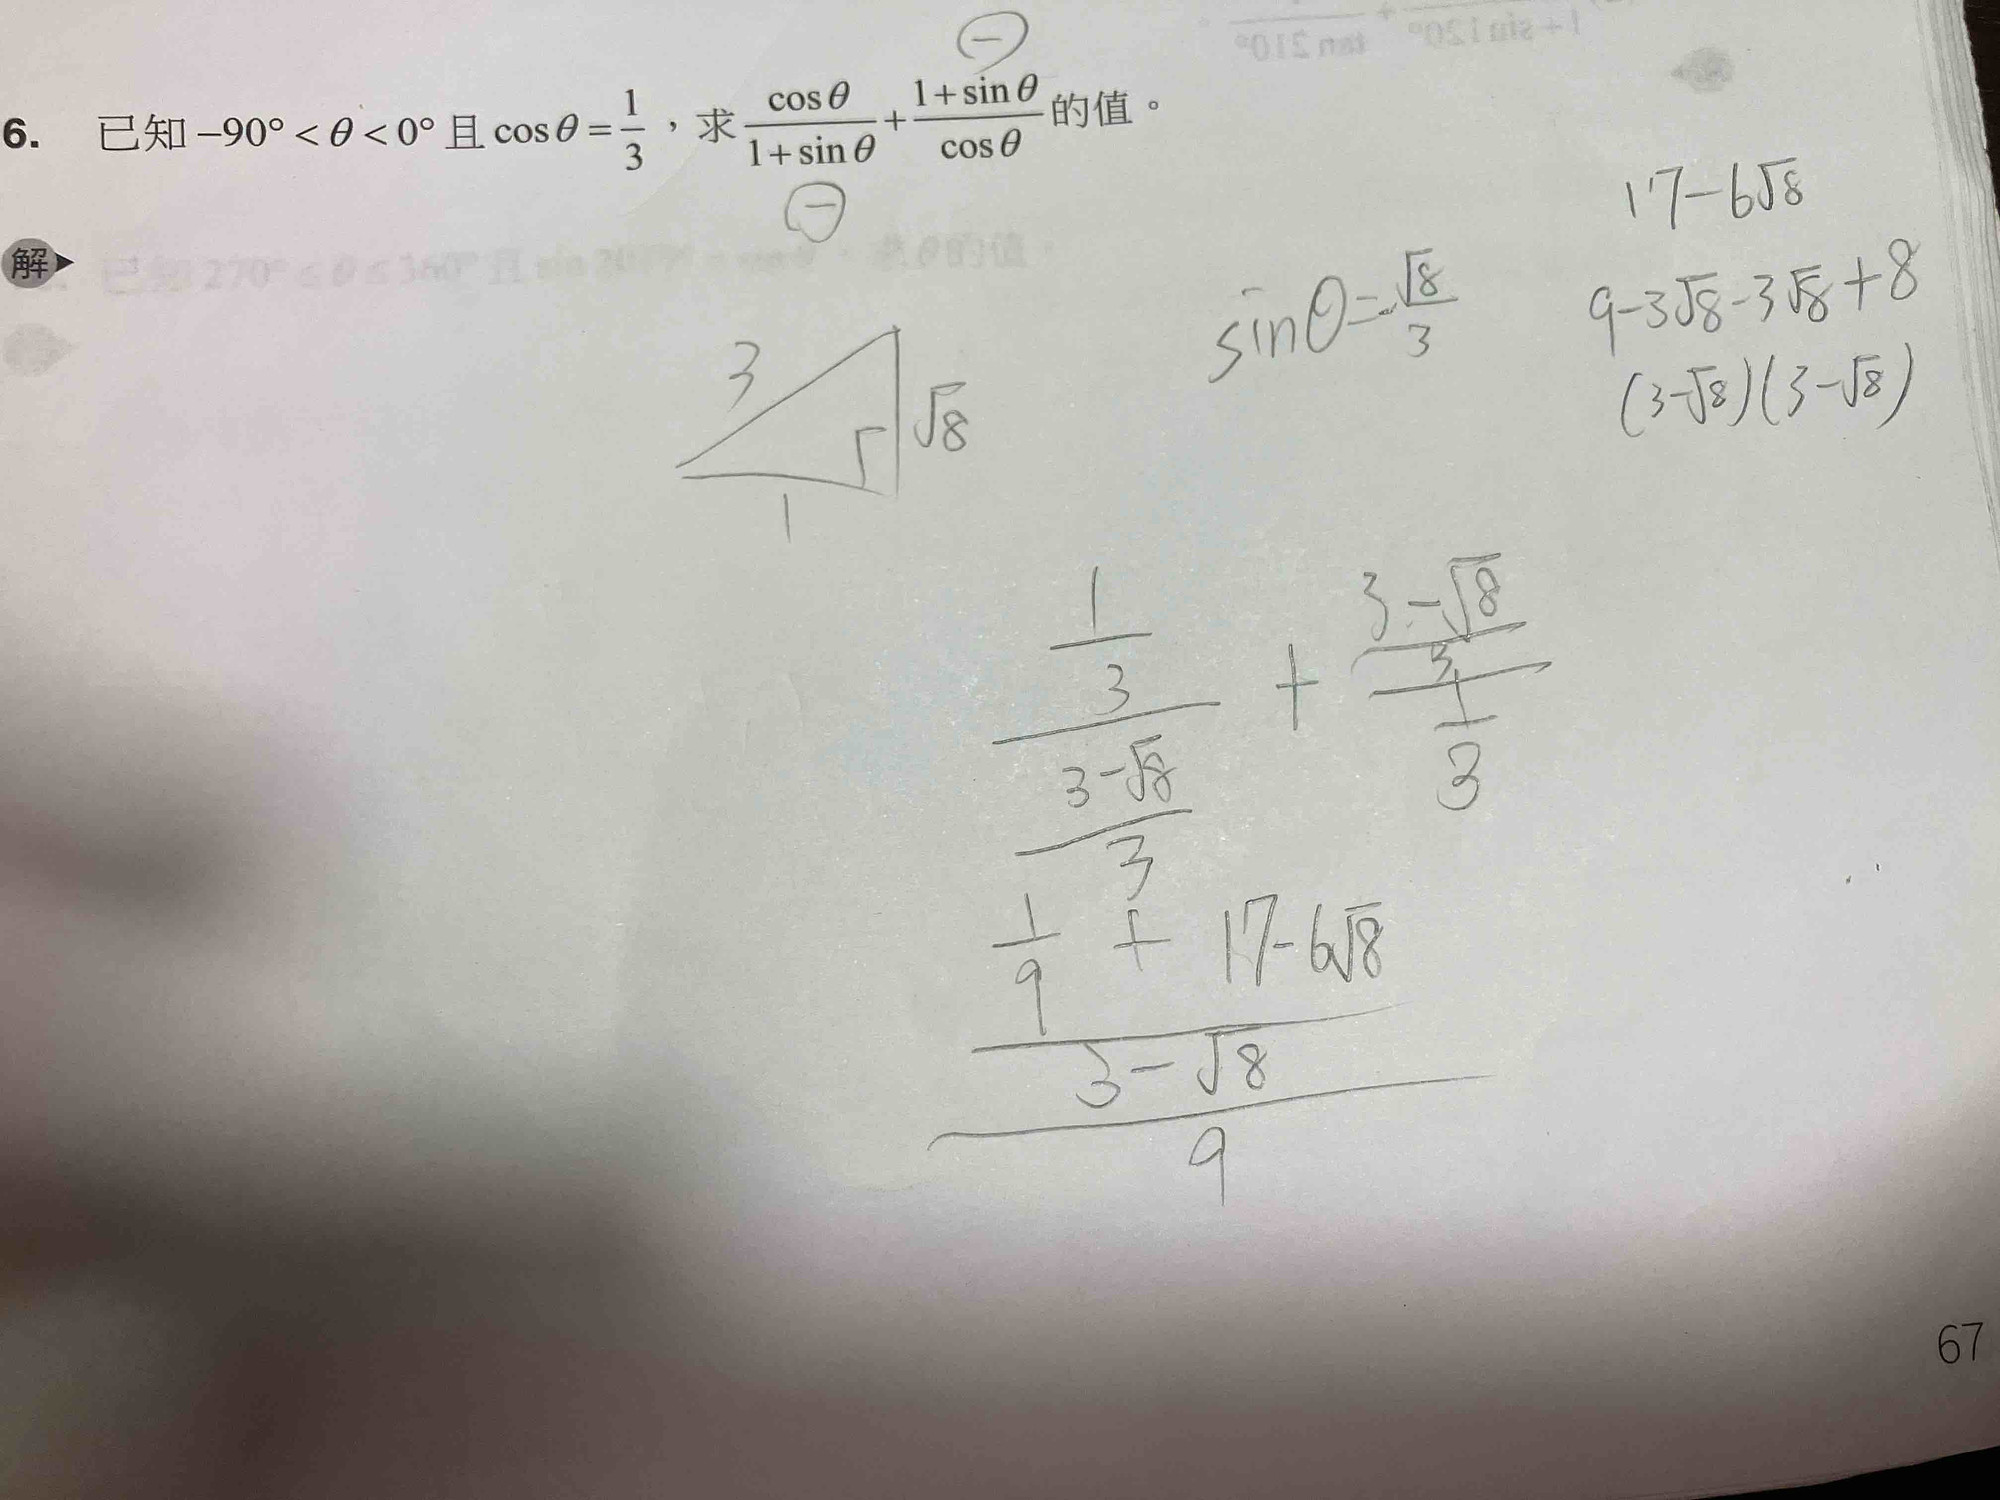 6. 已知 −90° < θ < 0° 且 cosθ = 1/3，求 cosθ/(1+sinθ) + (1+sinθ)/cosθ 的值。
⊖
⊖
解
17−6√8
sinθ=-√8/3
9−3√8−3√8+8
(3−√8)(3−√8)
3
√8
1
(1/3)/((3−√8)/3) + ((3−√8)/3)/(1/3)
(1/9 + 17−6√8)/((3−√8)/9)
67